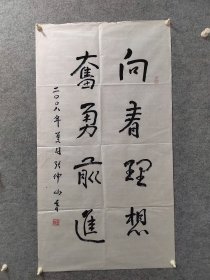 向着理想
奮勇前進
二〇〇八年 仲山書